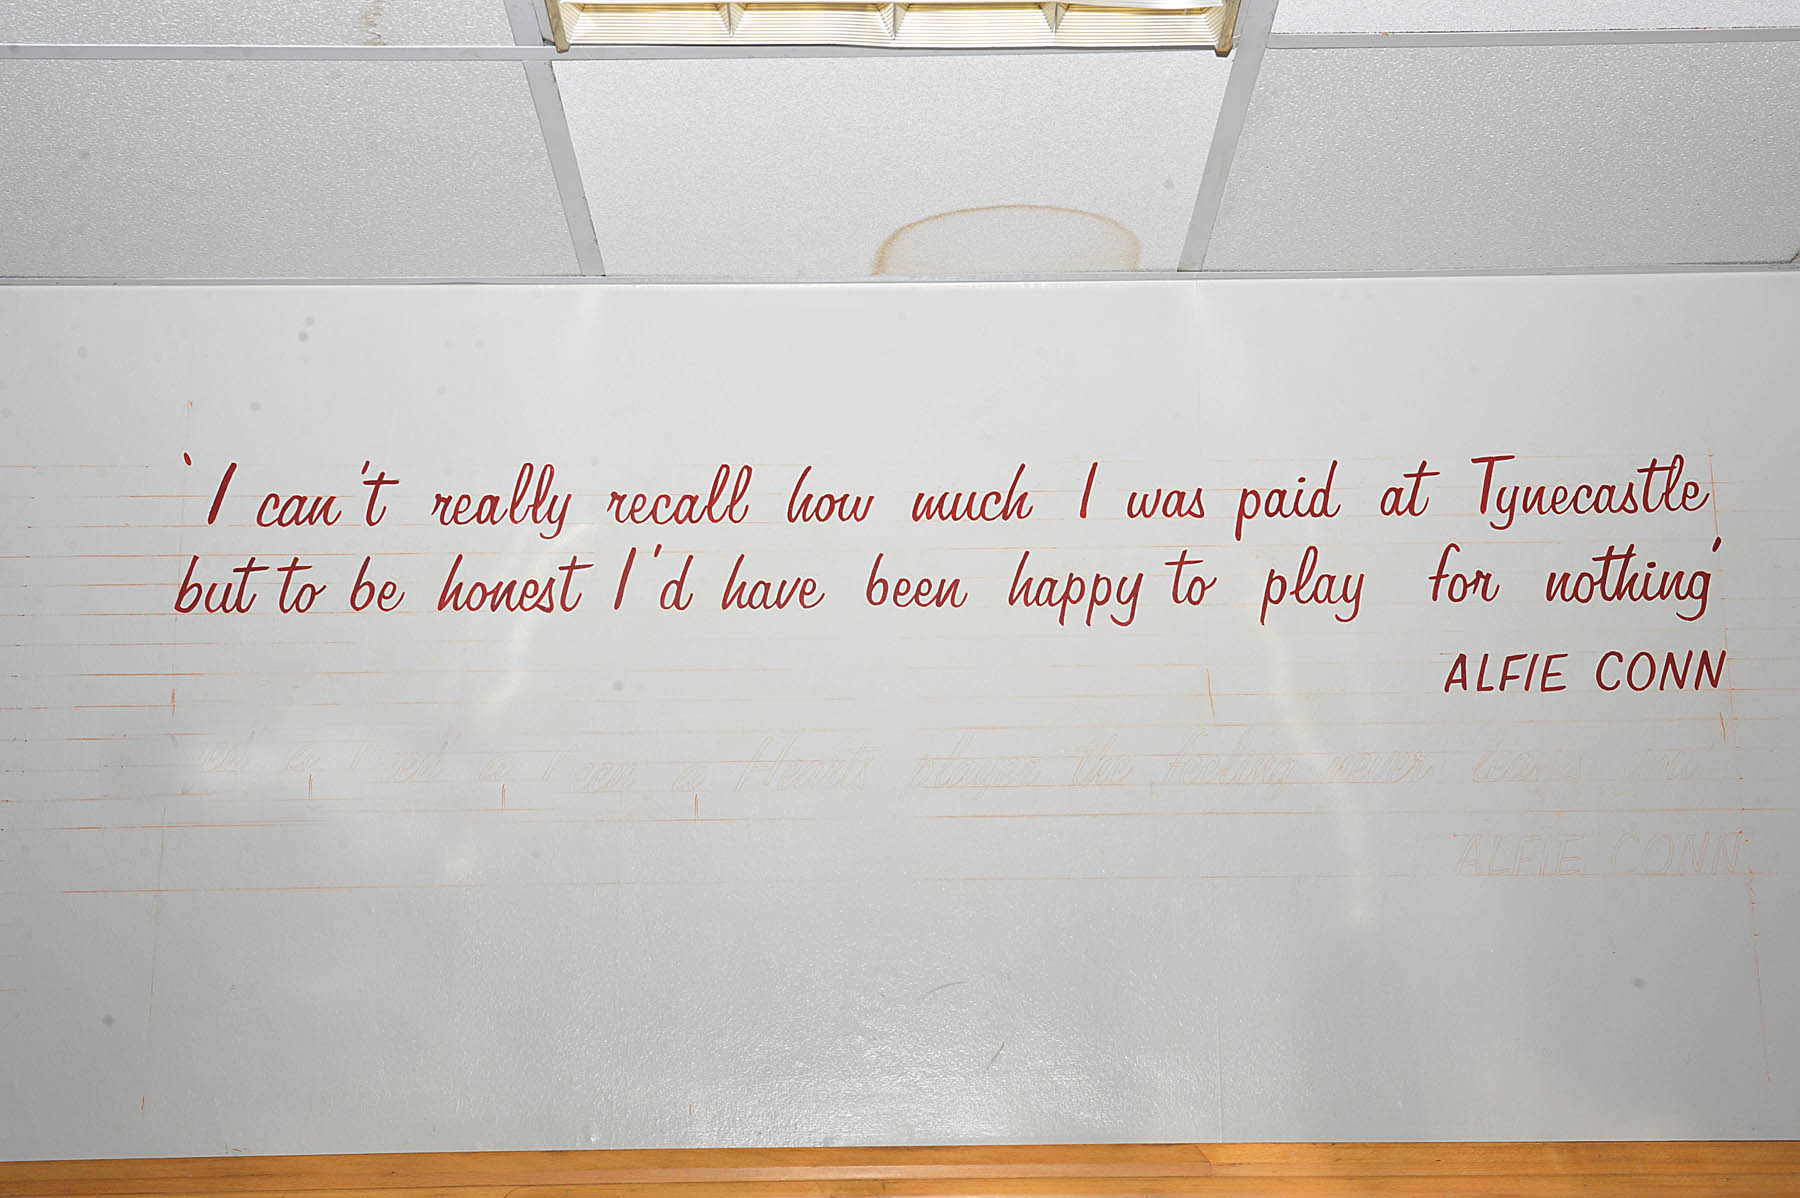 'I can't really recall how much I was paid at Tynecastle
but to be honest I'd have been happy to play for nothing'
ALFIE CONN
a Hearts player the feeling never leaves
ALFIE CONN